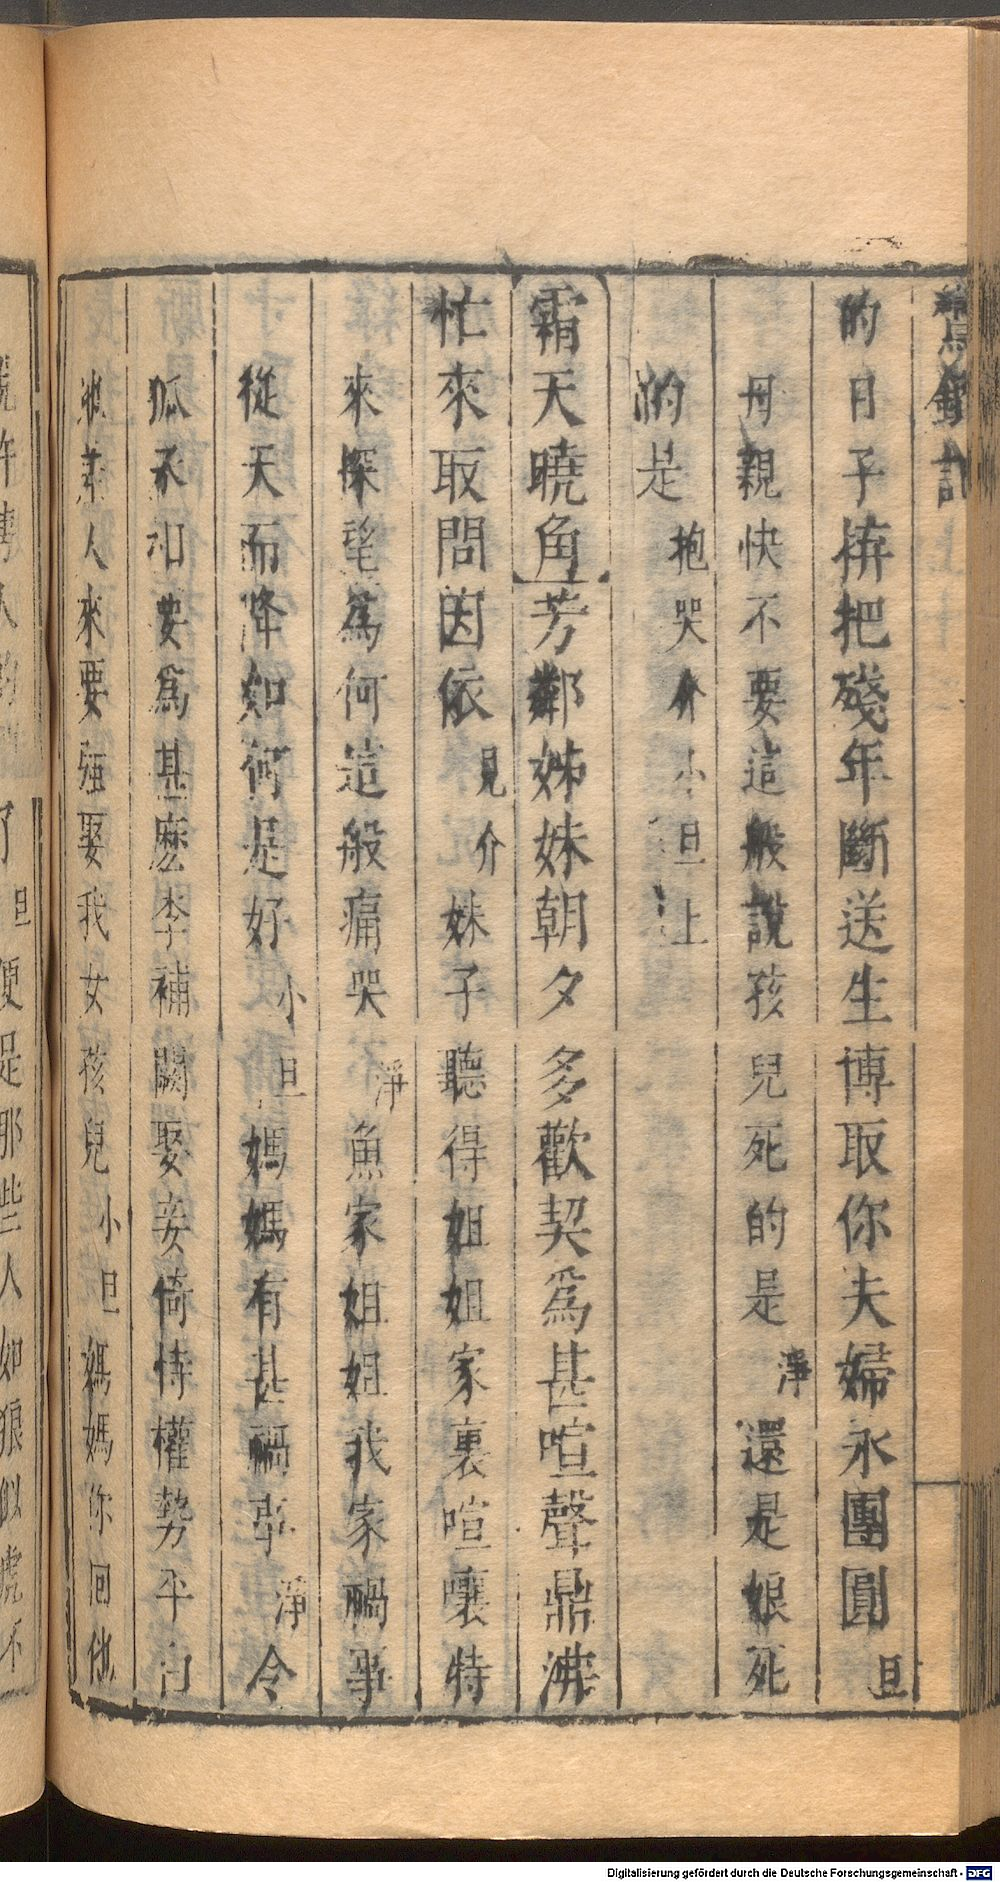 的日子拚把殘年斷送生博取你夫婦永團圓旦
母親快不要這般說孩兒死的是淨還是娘死
的是抱哭介小旦上
霜天曉角芳鄰姊妹朝夕多歡契爲甚喧聲鼎沸
忙來取問因依見介妹子聽得姐姐家裏喧嚷特
來探望爲何這般痛哭淨魚家姐姐我家禍事
從天而降如何是好小旦媽媽有甚禍事淨令
狐丞相要爲甚麽李補闕娶妾倚恃權勢平白
差人來要强娶我女孩兒小旦媽媽你回他
旦便是那些人如狼似虎不
Digitalisierung gefördert durch die Deutsche Forschungsgemeinschaft - DFG